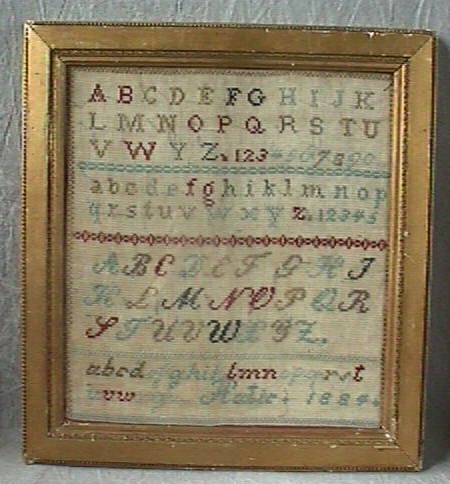 A B C D E F G H I J K
L M N O P Q R S T U
V W Y Z. 1 2 3 4 5 6 7 8 9 0
a b c d e f g h i k l m n o p
q r s t u v w x y z. 1 2 3 4 5
A B C D E F G H I
K L M N O P Q R
S T U V W X Y Z.
a b c d e f g h i k l m n o p q r s t
u v w 1884.